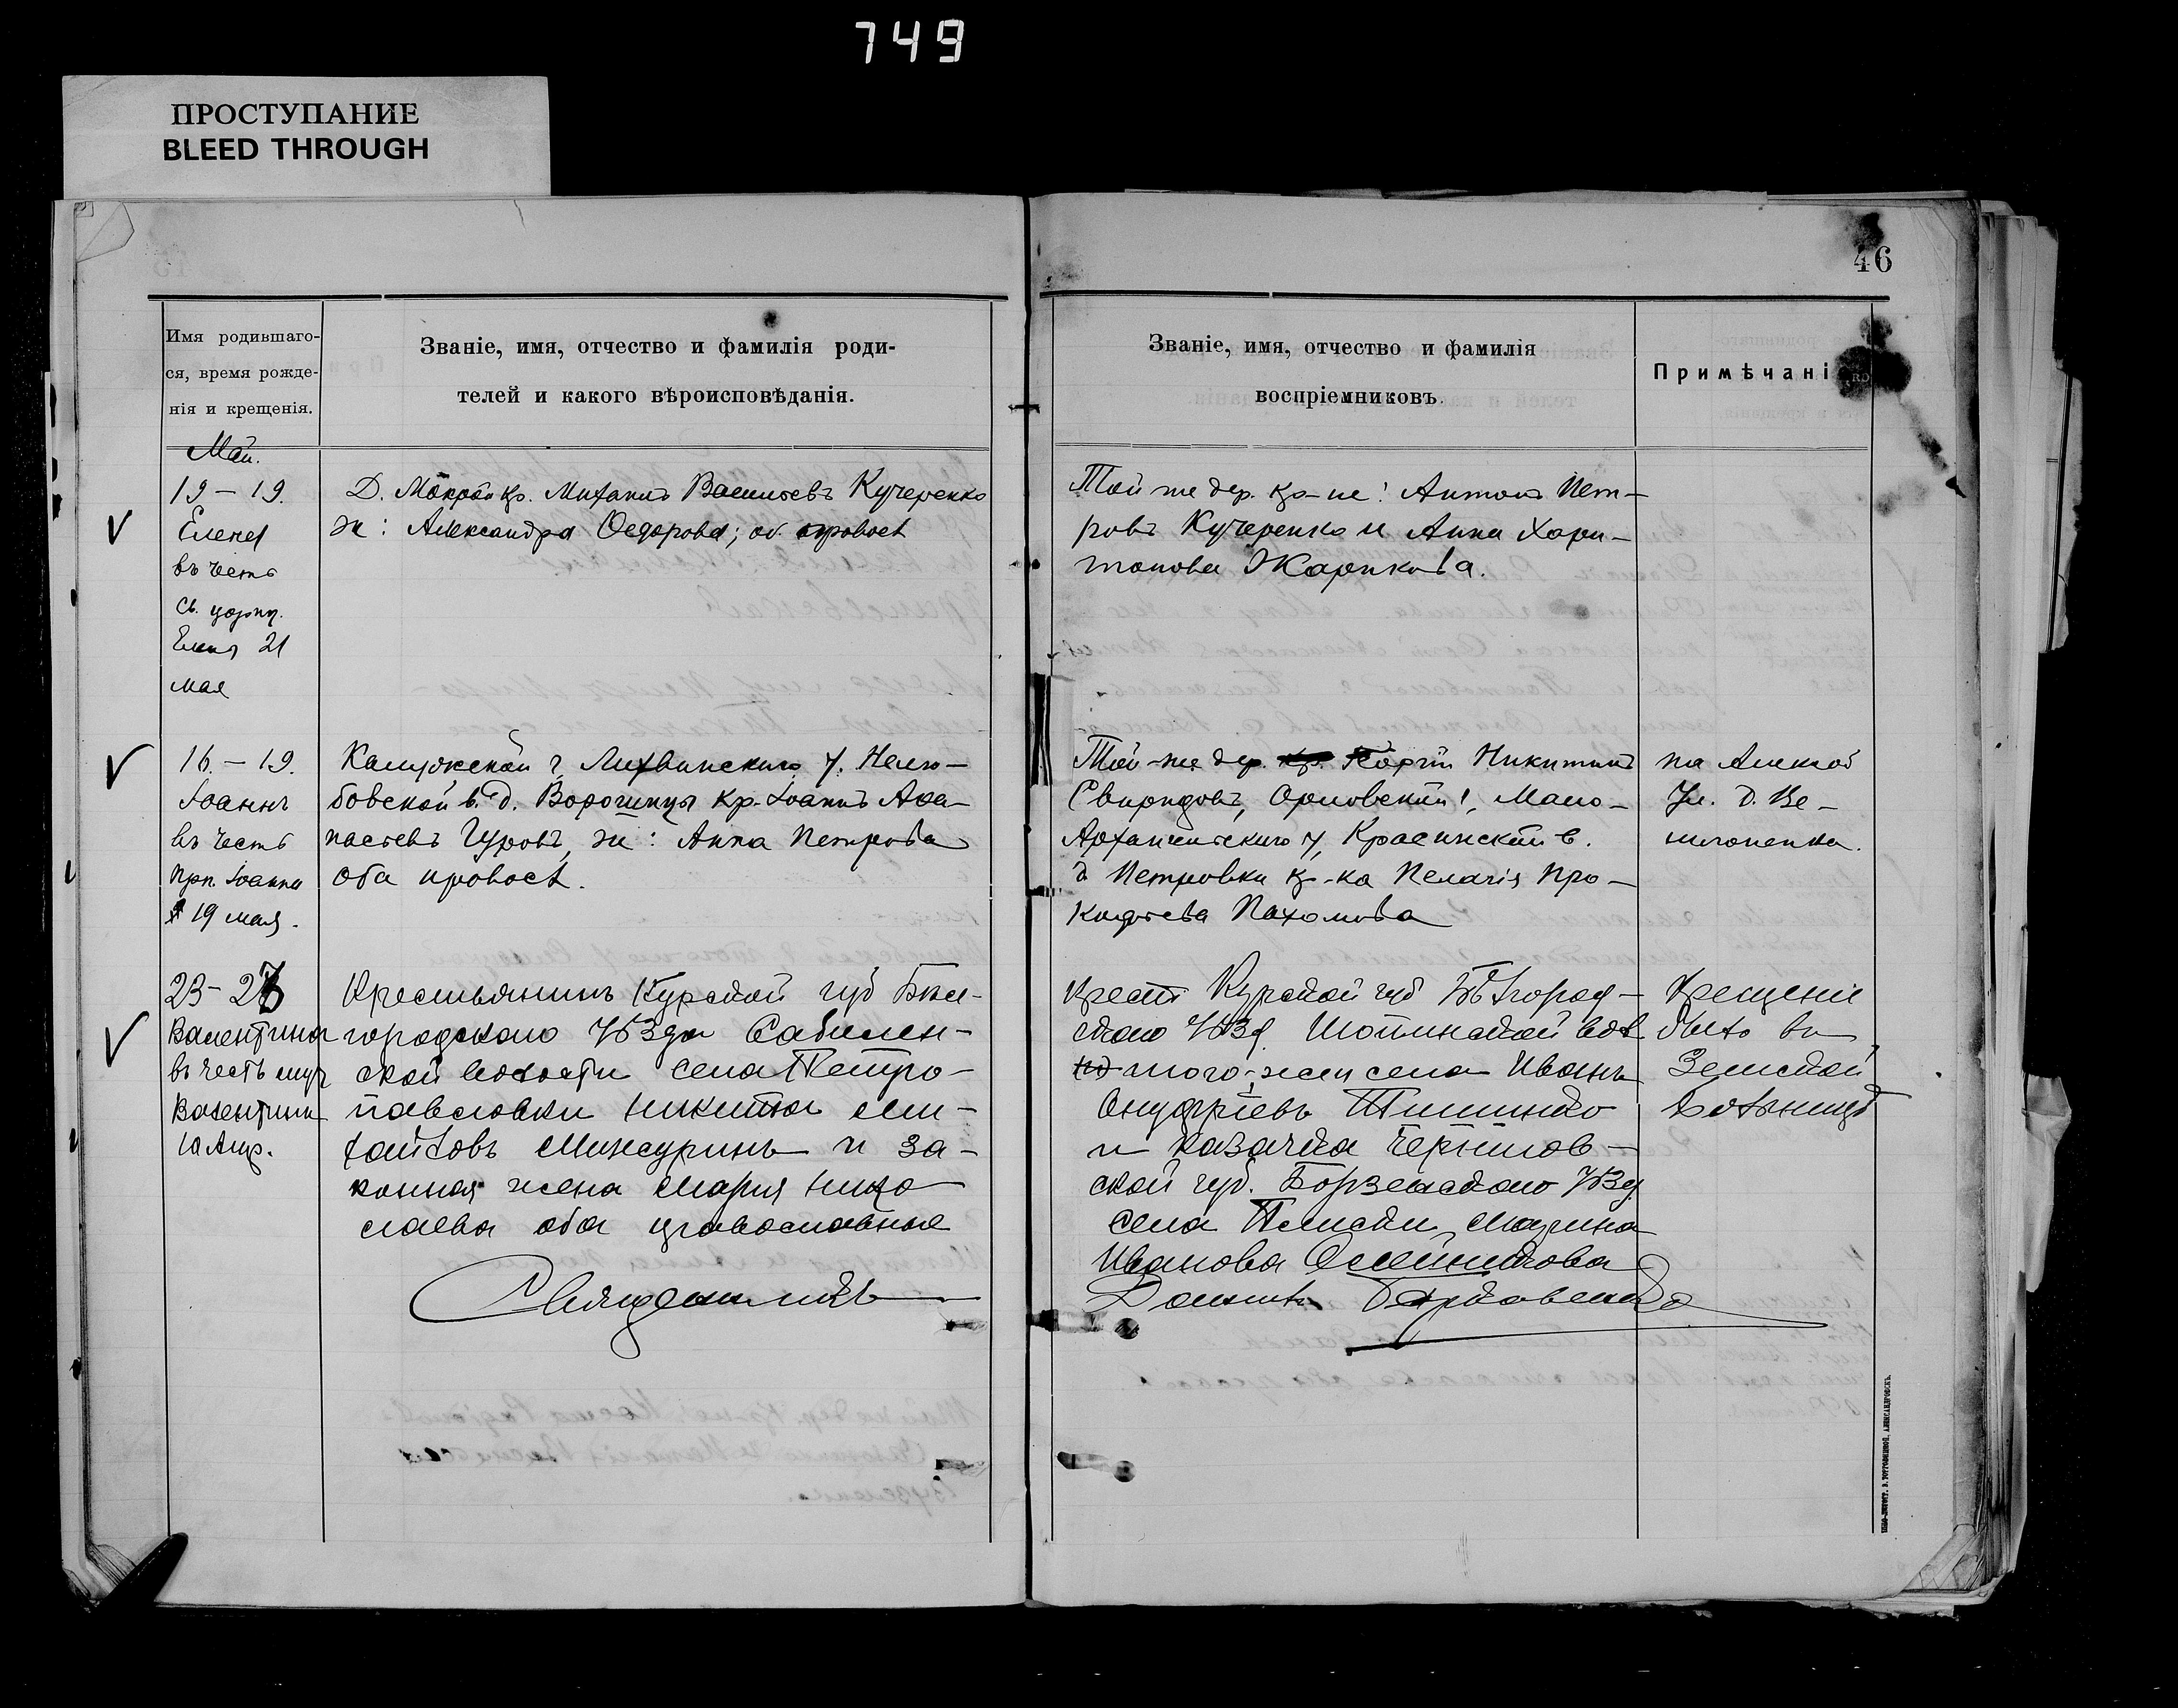 749
ПРОСТУПАНИЕ
BLEED THROUGH
46
Имя родившаго-
ся, время рожде-
нія и крещенія.
Званіе, имя, отчество и фамилія роди-
телей и какого вѣроисповѣданія.
Званіе, имя, отчество и фамилія
воспріемниковъ.
Примѣчані
Май.
19 – 19.
Елена
въ честь
св. цариц.
Елены 21
мая
Д. Мокрой кр. Михаилъ Васильевъ Кучеренко
ж: Александра Ѳедорова; об. правосл
Той же дер. кр-не: Антонъ Пет-
ровъ Кучеренко и Анна Хари-
тонова Жарикова.
16. – 19.
Іоаннъ
въ честь
прп. Іоанна
19 мая.
Калужской г. Лихвинскаго у. Нелю-
бовской в. д. Ворогинцы кр. Іоаннъ Аѳа-
насьевъ Гуровъ, ж: Анна Петрова
оба правосл.
Той-же дер. кр. Никитинъ
Свиридовъ, Орловской г, Мало-
Архангельскаго у, Красинской в.
д. Петровки кр-ка Пелагія Про-
кофьева Пахомова
на Алексѣ
Ул. д. Ве-
23 – 2
Валентина
въ честь муч
Валентины
10 Апр.
Крестьянинъ Курской губ Бѣл-
городскаго уѣзда Сабынин-
ской волости села Петро-
павловки Никита Ми-
хайловъ Минсуринъ и за-
конная жена Марія Нико
лаева оба православные
Крест Курской губ Бѣлгород-
скаго уѣзд. Шопинской вол
того-же села Иванъ
Онуфріевъ Тишинко
и казачка Чернигов-
ской губ. Борзенскаго уѣзд
села Плиски Марина
Иванова Олейникова
Крещеніе
было въ
Земской
больницѣ
Священникъ